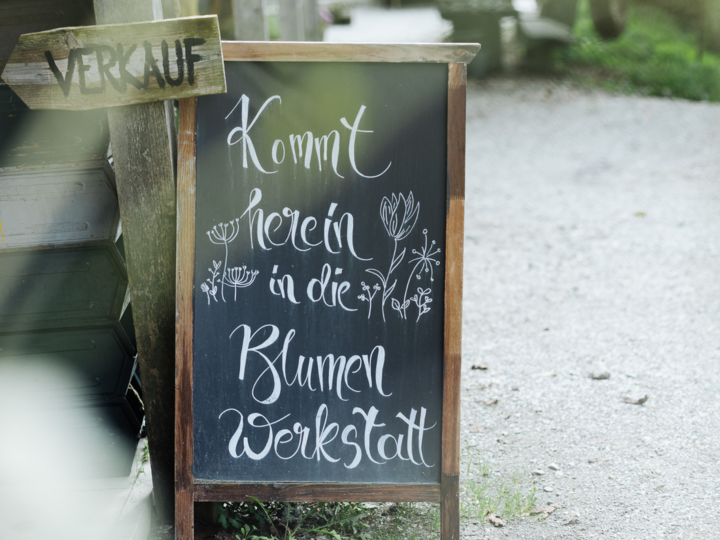 VERKAUF
Kommt
herein
in die
Blumen
Werkstatt